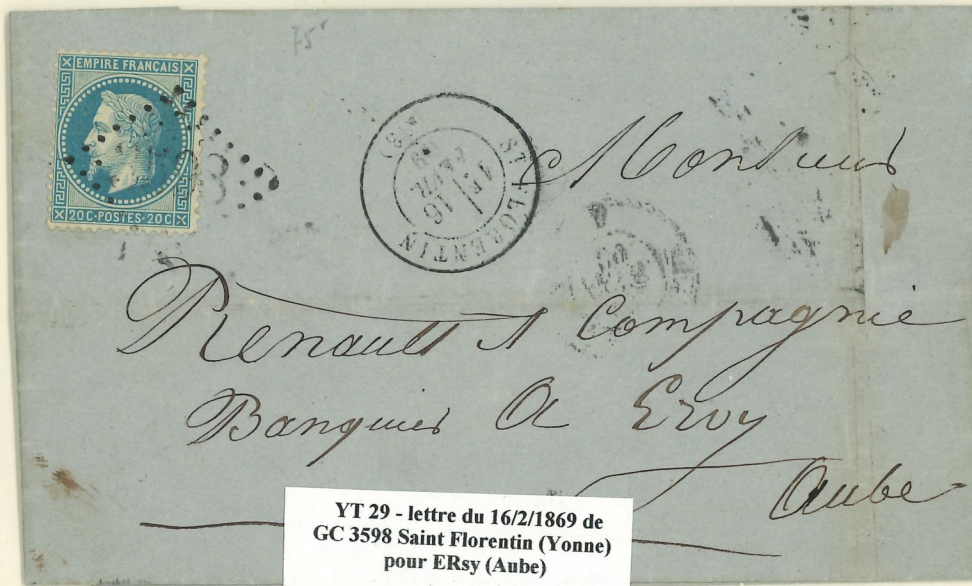 75
EMPIRE FRANÇAIS
20C·POSTES·20C
ST FLORENTIN
1E
16
69
(83)
Monsieur
Renault & Compagnie
Banquier A Ervy
Aube
YT 29 - lettre du 16/2/1869 de
GC 3598 Saint Florentin (Yonne)
pour ERsy (Aube)